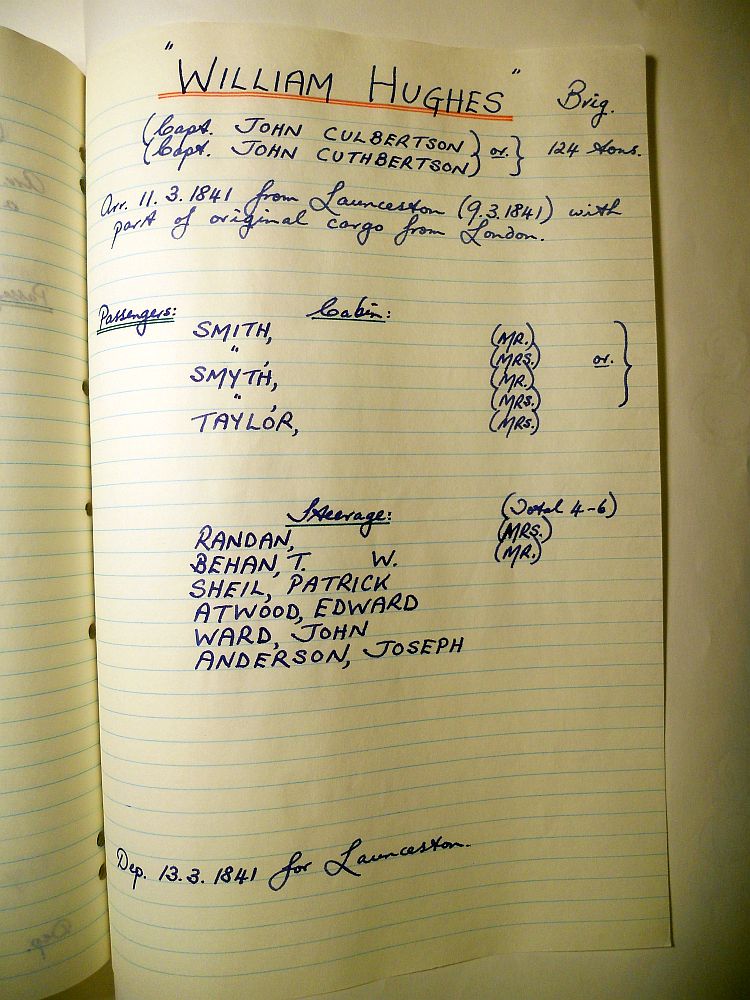 "WILLIAM HUGHES" Brig.
(Capt. JOHN CULBERTSON) or. } 124 tons.
(Capt. JOHN CUTHBERTSON)
Arr. 11.3.1841 from Launceston (9.3.1841) with
part of original cargo from London.
Passengers: Cabin:
SMITH, (MR.)
" , (MRS.) or. }
SMYTH, (MR.)
" , (MRS.)
TAYLOR, (MRS.)
Steerage: (Total 4-6)
RANDAN, (MRS.)
BEHAN, T. W. (MR.)
SHEIL, PATRICK
ATWOOD, EDWARD
WARD, JOHN
ANDERSON, JOSEPH
Dep. 13.3.1841 for Launceston.
Dep.